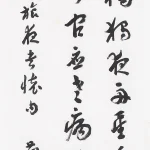 檣獨夜舟星
官應老病
旅夜書懷句